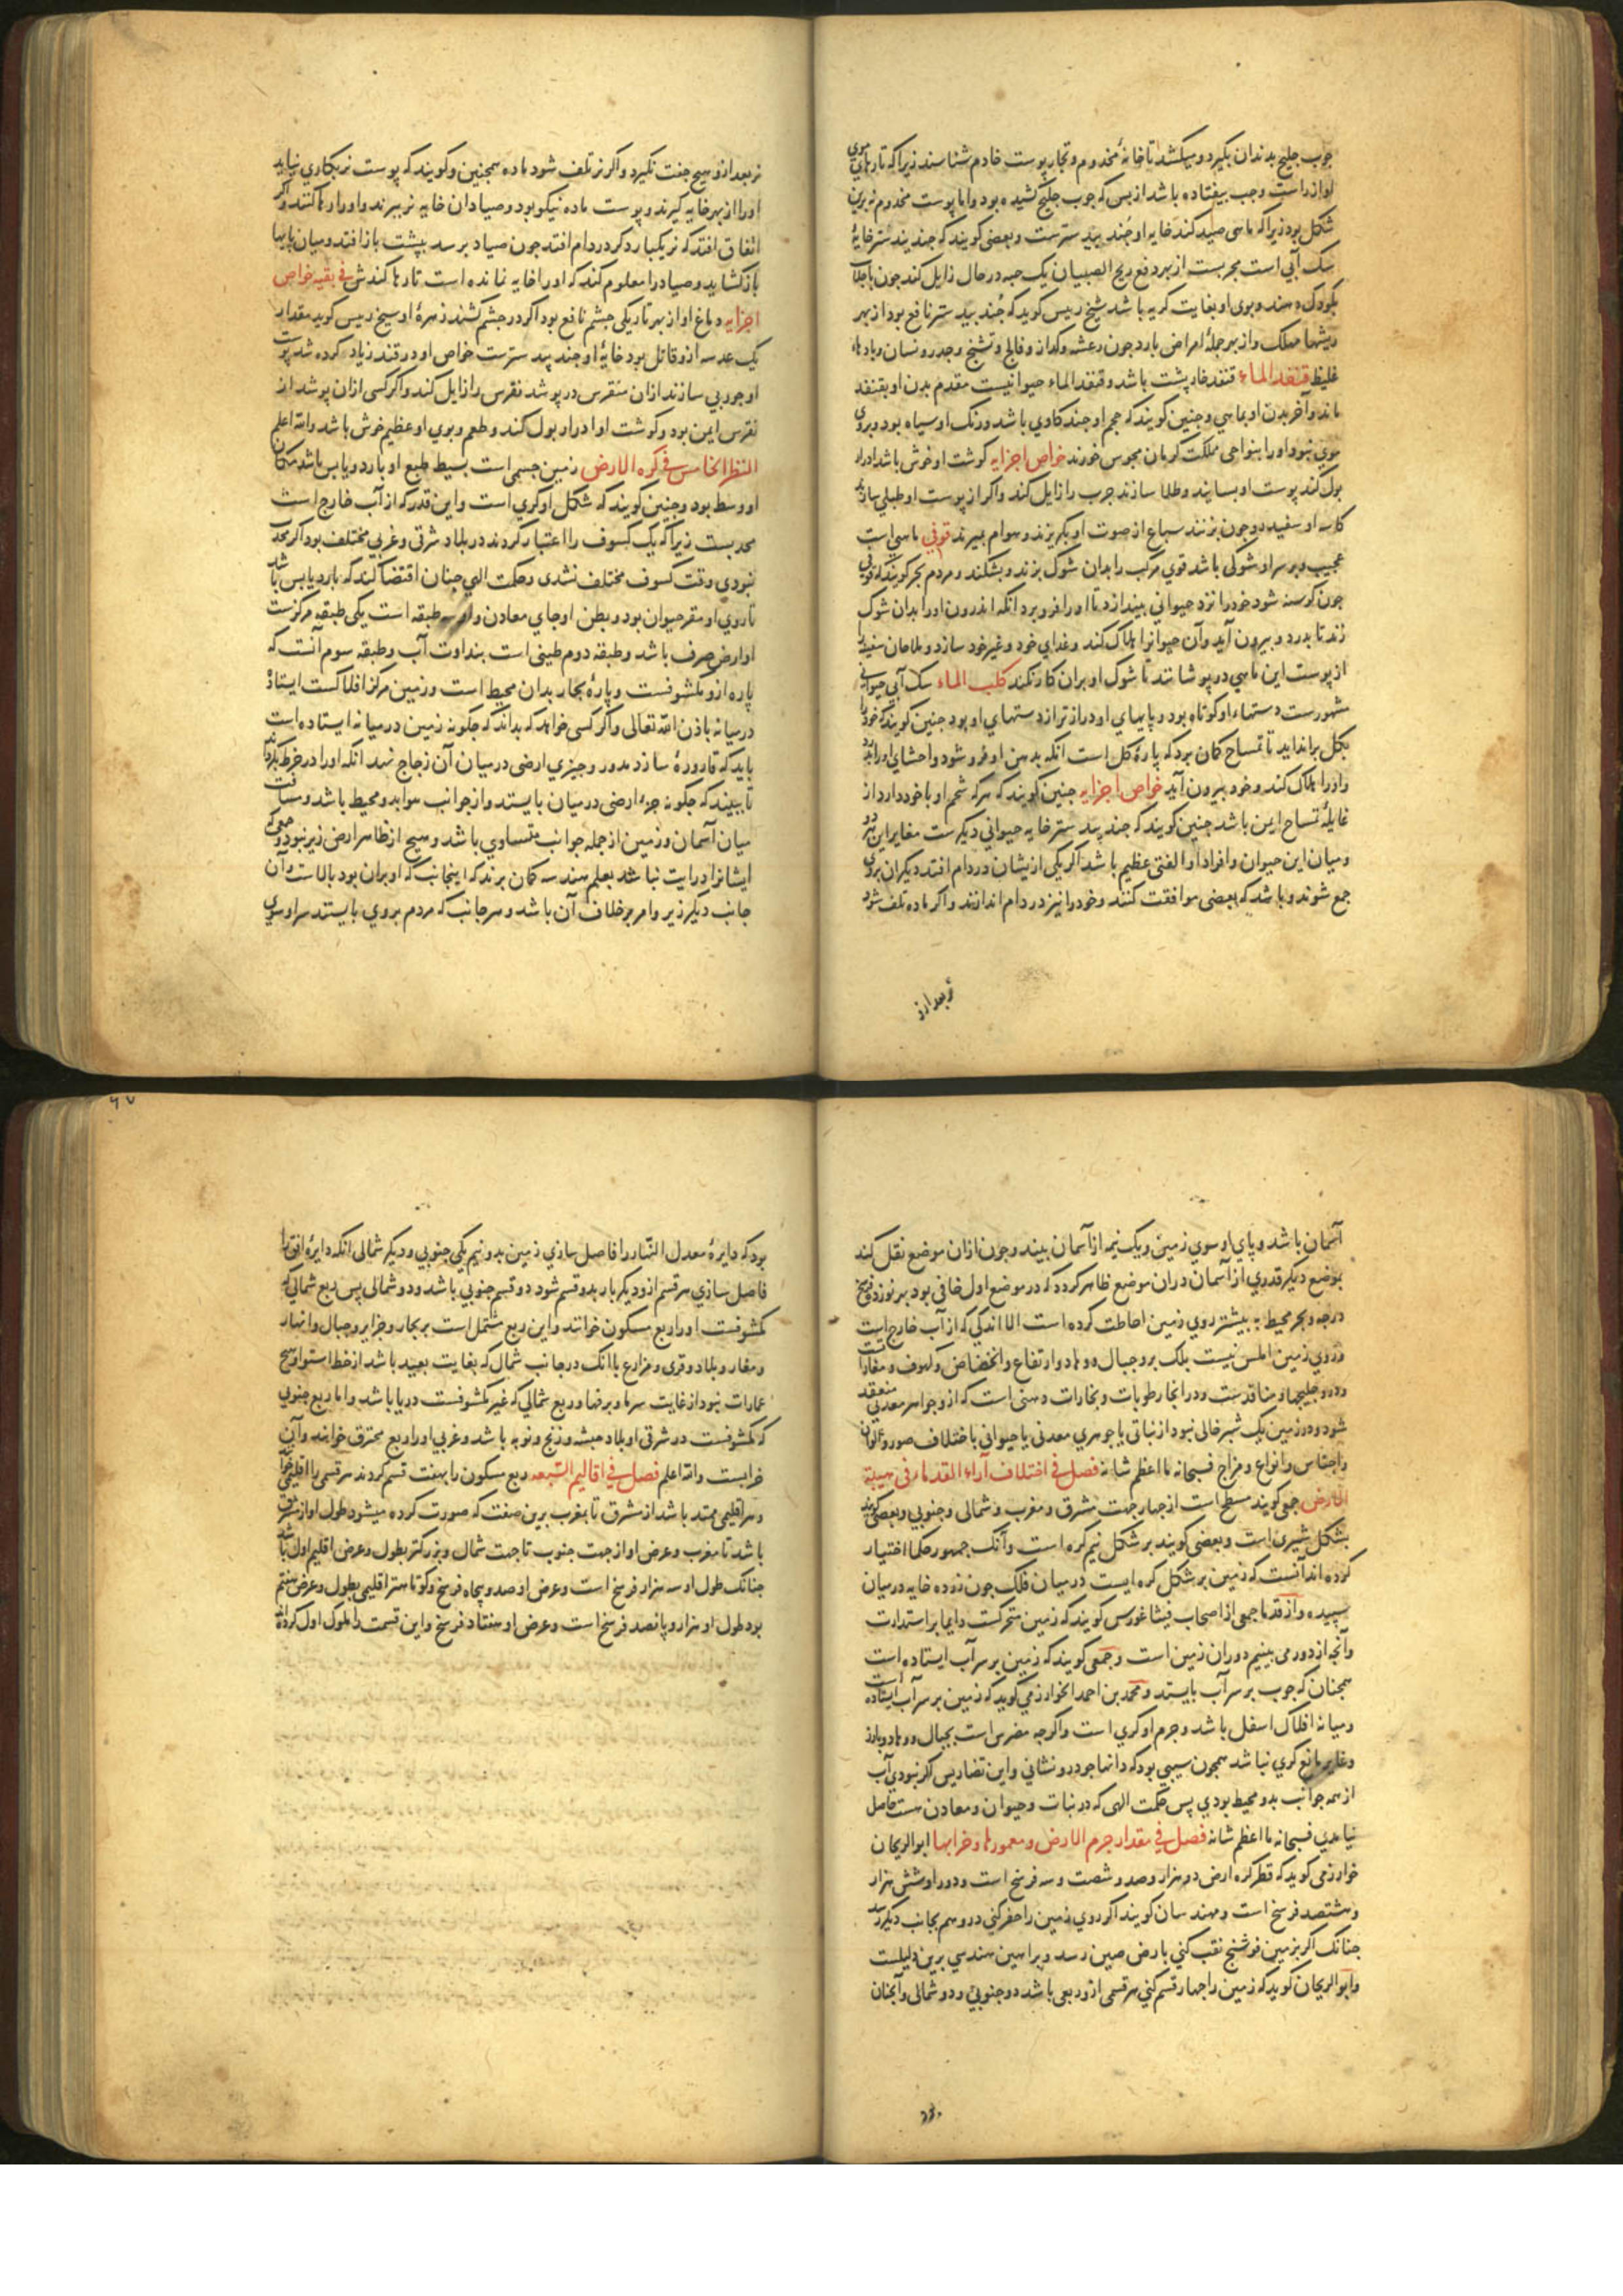 جوب خلیج بدندان بکیرد و میکشد تا خانهٔ مخدوم و تجار پوست خادم شناسند زیراکه تارهای موی
او از راست وجب بیفتاده باشد از بس که جوب خلیج کشیده بود واما پوست مخدوم نه برین
شکل بود زیراکه ماهی صید کند خایه او جند بید سترست وبعضی کویند که جند بید ستر خایهٔ
سک آبی است مجربست از بهر دفع ریح الصبیان یک حبه در حال زایل کند جون باجلاب
بکودک دهند وبوی او بغایت کریه باشد شیخ رییس کوید که جند بید ستر نافع بود از بهر
ریشها مهلک واز بهر جملهٔ امراض بارد جون رعشه وکزاز وفالج وتشنج وجدر ونسان وبادهاء
غلیظ قنفد الماء قنفد خارپشت باشد وقنفد الماء حیوانیست مقدم بدن او بقنفد
ماند وآخر بدن او بماهی وجنین کویند که حجم او جند کاوی باشد ورنک او سیاه بود وبروی
موی نبود واورا بنواحی مملکت کرمان مجوس خورند خواص اجزایه کوشت او خوش باشد ادرار
بول کند پوست او بسایند وطلا سازند جرب را زایل کند واکر از پوست او طبلی سازند
کاسه او سفید رو جون بزنند سباع از صوت او بکریزند وهوام بمیرند قوقی ماهی است
عجیب وبر سر او شوکی باشد قوی مرکب را بدان شوک بزند وبشکند ومردم بحر کویند که قوقی
جون کرسنه شود خودرا نزد حیوانی بیندازد تا اورا فرو برد انکه اندرون اورا بدان شوک
زند تا بدرد وبیرون آید وآن حیوانرا هلاک کند وغدای خود وغیر خود سازد وملاحان سفینه را
از پوست این ماهی در پوشانند تا شوک او بران کار نکند کلب الماء سک آبی حیوانی
مشهورست دستهاء او کوتاه بود وپایهای او دراز تر از دستهای او بود جنین کویند که خودرا
بکل برانداید تا تمساح کمان برد که پارهٔ کل است انکه بدهن او فرو شود واحشای اورا بدرد
واورا هلاک کند وخود بیرون آید خواص اجزایه جنین کویند که هرکه شحم او با خود دارد از
غایلهٔ تمساح ایمن باشد جنین کویند که جند بید ستر خایه حیوانی دیکرست مغایر این هر دو
ومیان این حیوان وافراد او الفتی عظیم باشد اکر یکی ازیشان در دام افتد دیکران بروی
جمع شوند وباشد که بعضی موافقت کنند وخودرا نیز در دام اندازند واکر ماده تلف شود
نر بعد ازو
نر بعد ازو هیج جفت نکیرد واکر نر تلف شود ماده همجنین وکویند که پوست نر بکاری نیاید
اورا از بهر خایه کیرند وپوست ماده نیکو بود وصیادان خایه نر ببرند واورا رها کنند واکر
اتفاق افتد که نر یکبار دکر در دام افتد جون صیاد برسد بپشت باز افتد ومیان پایها
باز کشاید وصیادرا معلوم کند که اورا خایه نمانده است تا رها کندش فی بقیه خواص
اجزایه دماغ او از بهر تاریکی جشم نافع بود اکر در جشم کشند زهرهٔ او شیخ رییس کوید مقدار
یک عدسه ازو قاتل بود خایهٔ او جند بید سترست خواص او در قند زیاد کرده شد پوست
او جوربی سازند ازان منقرس درپوشد نقرس را زایل کند واکر کسی ازان پوشد از
نقرس ایمن بود وکوشت او ادرار بول کند وطعم وبوی او عظیم خوش باشد والله اعلم
النظر الخامس فی کره الارض زمین جسمی است بسیط طبع او بارد ویابس باشد مکان
او وسط بود وجنین کویند که شکل او کری است واین قدر که از آب خارج است
محدبست زیراکه یک کسوف را اعتبار کردند در بلاد شرقی وغربی مختلف بود اکر محدب
نبودی وقت کسوف مختلف نشدی وحکمت الهی جنان اقتضا کند که بارد یابس باشد
تا روی او مقر حیوان بود وبطن او جای معادن واو سه طبقه است یکی طبقه مرکزست
او ارض صرف باشد وطبقه دوم طینی است بنداوت آب وطبقه سوم آنست که
پاره ازو مکشوفست وپارهٔ بحار بدان محیط است وزمین مرکز افلاکست ایستاده
درمیانه باذن الله تعالی واکر کسی خواهد که بداند که جکونه زمین درمیانه ایستاده است
باید که قارورهٔ سازد مدور وجیزی ارضی درمیان آن زجاج نهد انکه اورا در خرط بکرداند
تا ببیند که جکونه جزء ارضی درمیان بایستد واز جوانب هوا بدو محیط باشد ومسافت
میان آسمان وزمین از جمله جوانب متساوی باشد وهیج از ظاهر ارض زیر نبود وجمعی که
ایشانرا درایت نباشد بعلم هندسه کمان برند که اینجانب که او بران بود بالاست وآن
جانب دیکر زیر وامر بر خلاف آن باشد وهر جانب که مردم بروی بایستد سر او سوی
آسمان باشد وپای او سوی زمین ویک نیمه از آسمان بیند وجون ازان موضع نقل کند
بموضع دیکر قدری از آسمان دران موضع ظاهر کردد که در موضع اول خافی بود بهر نوزده فرسخ
درجه وبحر محیط به بیشتر روی زمین احاطت کرده است الا اندکی که از آب خارج است
وروی زمین املس نیست بلک برو جبال ووهاد وارتفاع وانخفاض وکهوف ومغاراتست
ودرو خلیجها ومنافذست ودر انجا رطوبات وبخارات دهنی است که ازو جواهر معدنی منعقد
شود ودر زمین یک شبر خالی نبود از نباتی یا جوهری معدنی یا حیوانی باختلاف صور والوان
واجناس وانواع ومزاج فسبحانه ما اعظم شانه فصل فی اختلاف آراء القدماء فی هیئة
الارض جمعی کویند مسطح است از جهار جهت مشرق ومغرب وشمالی وجنوبی وبعضی کویند
بشکل شیری است وبعضی کویند بر شکل نیم کره است وآنک جمهور حکما اختیار
کرده اند آنست که زمین بر شکل کره ایست درمیان فلک جون زرده خایه درمیان
سپیده واز قدما جمعی از اصحاب فیثاغورس کویند که زمین متحرکست دایما بر استدارت
وآنجه از دور می بینیم دوران زمین است وجمعی کویند که زمین بر سر آب ایستاده است
همجنان که جوب بر سر آب بایستد ومحمد بن احمد الخوارزمی کوید که زمین بر سر آب ایستاده است
ومیانه افلاک اسفل باشد وجرم او کری است واکرجه مضرس است بجبال ووهاد وبارز
وغایر مانع کری نباشد همجون سیبی بود که دانها جو درو نشانی واین تضاریس اکر نبودی آب
از همه جوانب بدو محیط بودی پس حکمت الهی که در نبات وحیوان ومعادن هست حاصل
نیامدی فسبحانه ما اعظم شانه فصل فی مقدار جرم الارض ومعمورها وخرابها ابو الریحان
خوارزمی کوید که قطر کره ارض دو هزار وصد وشصت وسه فرسخ است ودور او شش هزار
وهشتصد فرسخ است ومهندسان کویند اکر روی زمین را حفر کنی در وهم بجانب دیکر رسد
جنانک اکر بزمین فوشنج نقب کنی بارض صین رسد وبراهین هندسی برین دلیلست
وابو الریحان کوید که زمین را جهار قسم کنی هر قسمی ازو ربعی باشد دو جنوبی ودو شمالی وآنجنان
بود که
۶۷
بود که دایرهٔ معدل النهار را فاصل سازی زمین بدو نیم یکی جنوبی ودیکر شمالی انکه دایرهٔ افق را
فاصل سازی هر قسم ازو دیکر بار بدو قسم شود دو قسم جنوبی باشد ودو شمالی پس ربع شمالی که
مکشوفست اورا ربع مسکون خوانند واین ربع مشتمل است بر بحار وجزایر وجبال وانهار
ومغار وبلاد وقری ومزارع با انک در جانب شمال که بغایت بعید باشد از خط استوا هیج
عمارات نبود از غایت سرما وبرفها وربع شمالی که غیر مکشوفست دریا باشد واما ربع جنوبی
که مکشوفست در شرقی او بلاد حبشه وزنج ونوبه باشد وغربی اورا ربع محترق خوانند وآن
خرابست والله اعلم فصل فی اقالیم السبعه ربع مسکون را بهفت قسم کردند هر قسمی را اقلیمی خوانند
وهر اقلیمی ممتد باشد از مشرق تا بمغرب برین صفت که صورت کرده میشود طول او از مشرق
باشد تا مغرب وعرض او از جهت جنوب تا جهت شمال وبزرکتر بطول وعرض اقلیم اول باشد
جنانک طول او سه هزار فرسخ است وعرض او صد وپنجاه فرسخ وکوتاهتر اقلیمی بطول وعرض هفتم
بود طول او هزار وپانصد فرسخ است وعرض او هفتاد فرسخ واین قسمت را ملوک اول کرده اند